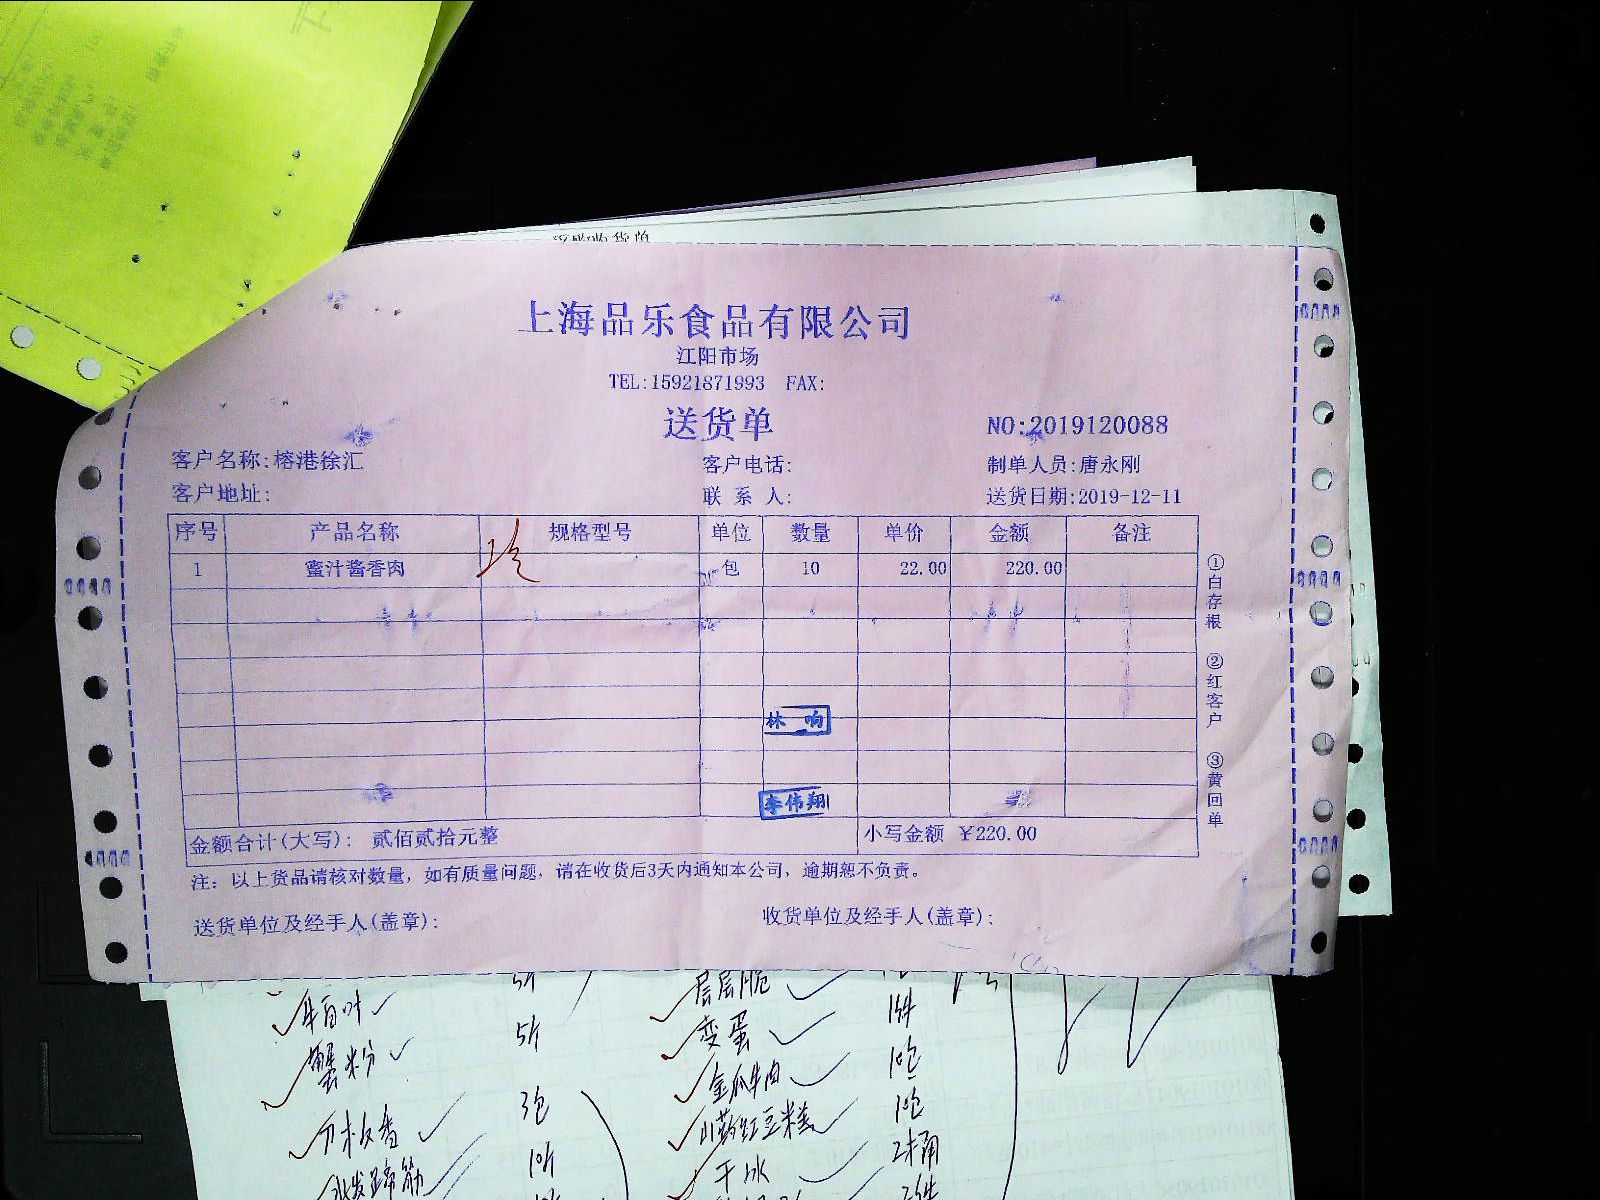 上海品乐食品有限公司
江阳市场
TEL:15921871993 FAX:
送货单
NO:2019120088
客户名称:榕港徐汇 客户电话: 制单人员:唐永刚
客户地址: 联 系 人: 送货日期:2019-12-11
序号 产品名称 规格型号 单位 数量 单价 金额 备注
1 蜜汁酱香肉 包 10 22.00 220.00
①白存根 ②红客户 ③黄回单
林 响
李伟翔
金额合计(大写): 贰佰贰拾元整 小写金额 ¥220.00
注:以上货品请核对数量,如有质量问题,请在收货后3天内通知本公司,逾期恕不负责。
送货单位及经手人(盖章): 收货单位及经手人(盖章):
牛百叶 5斤 层层脆
蟹粉 5斤 变蛋 1件
3包 金瓜牛肉 1包
水发蹄筋 10斤 山药红豆糕 1包
干冰 2桶